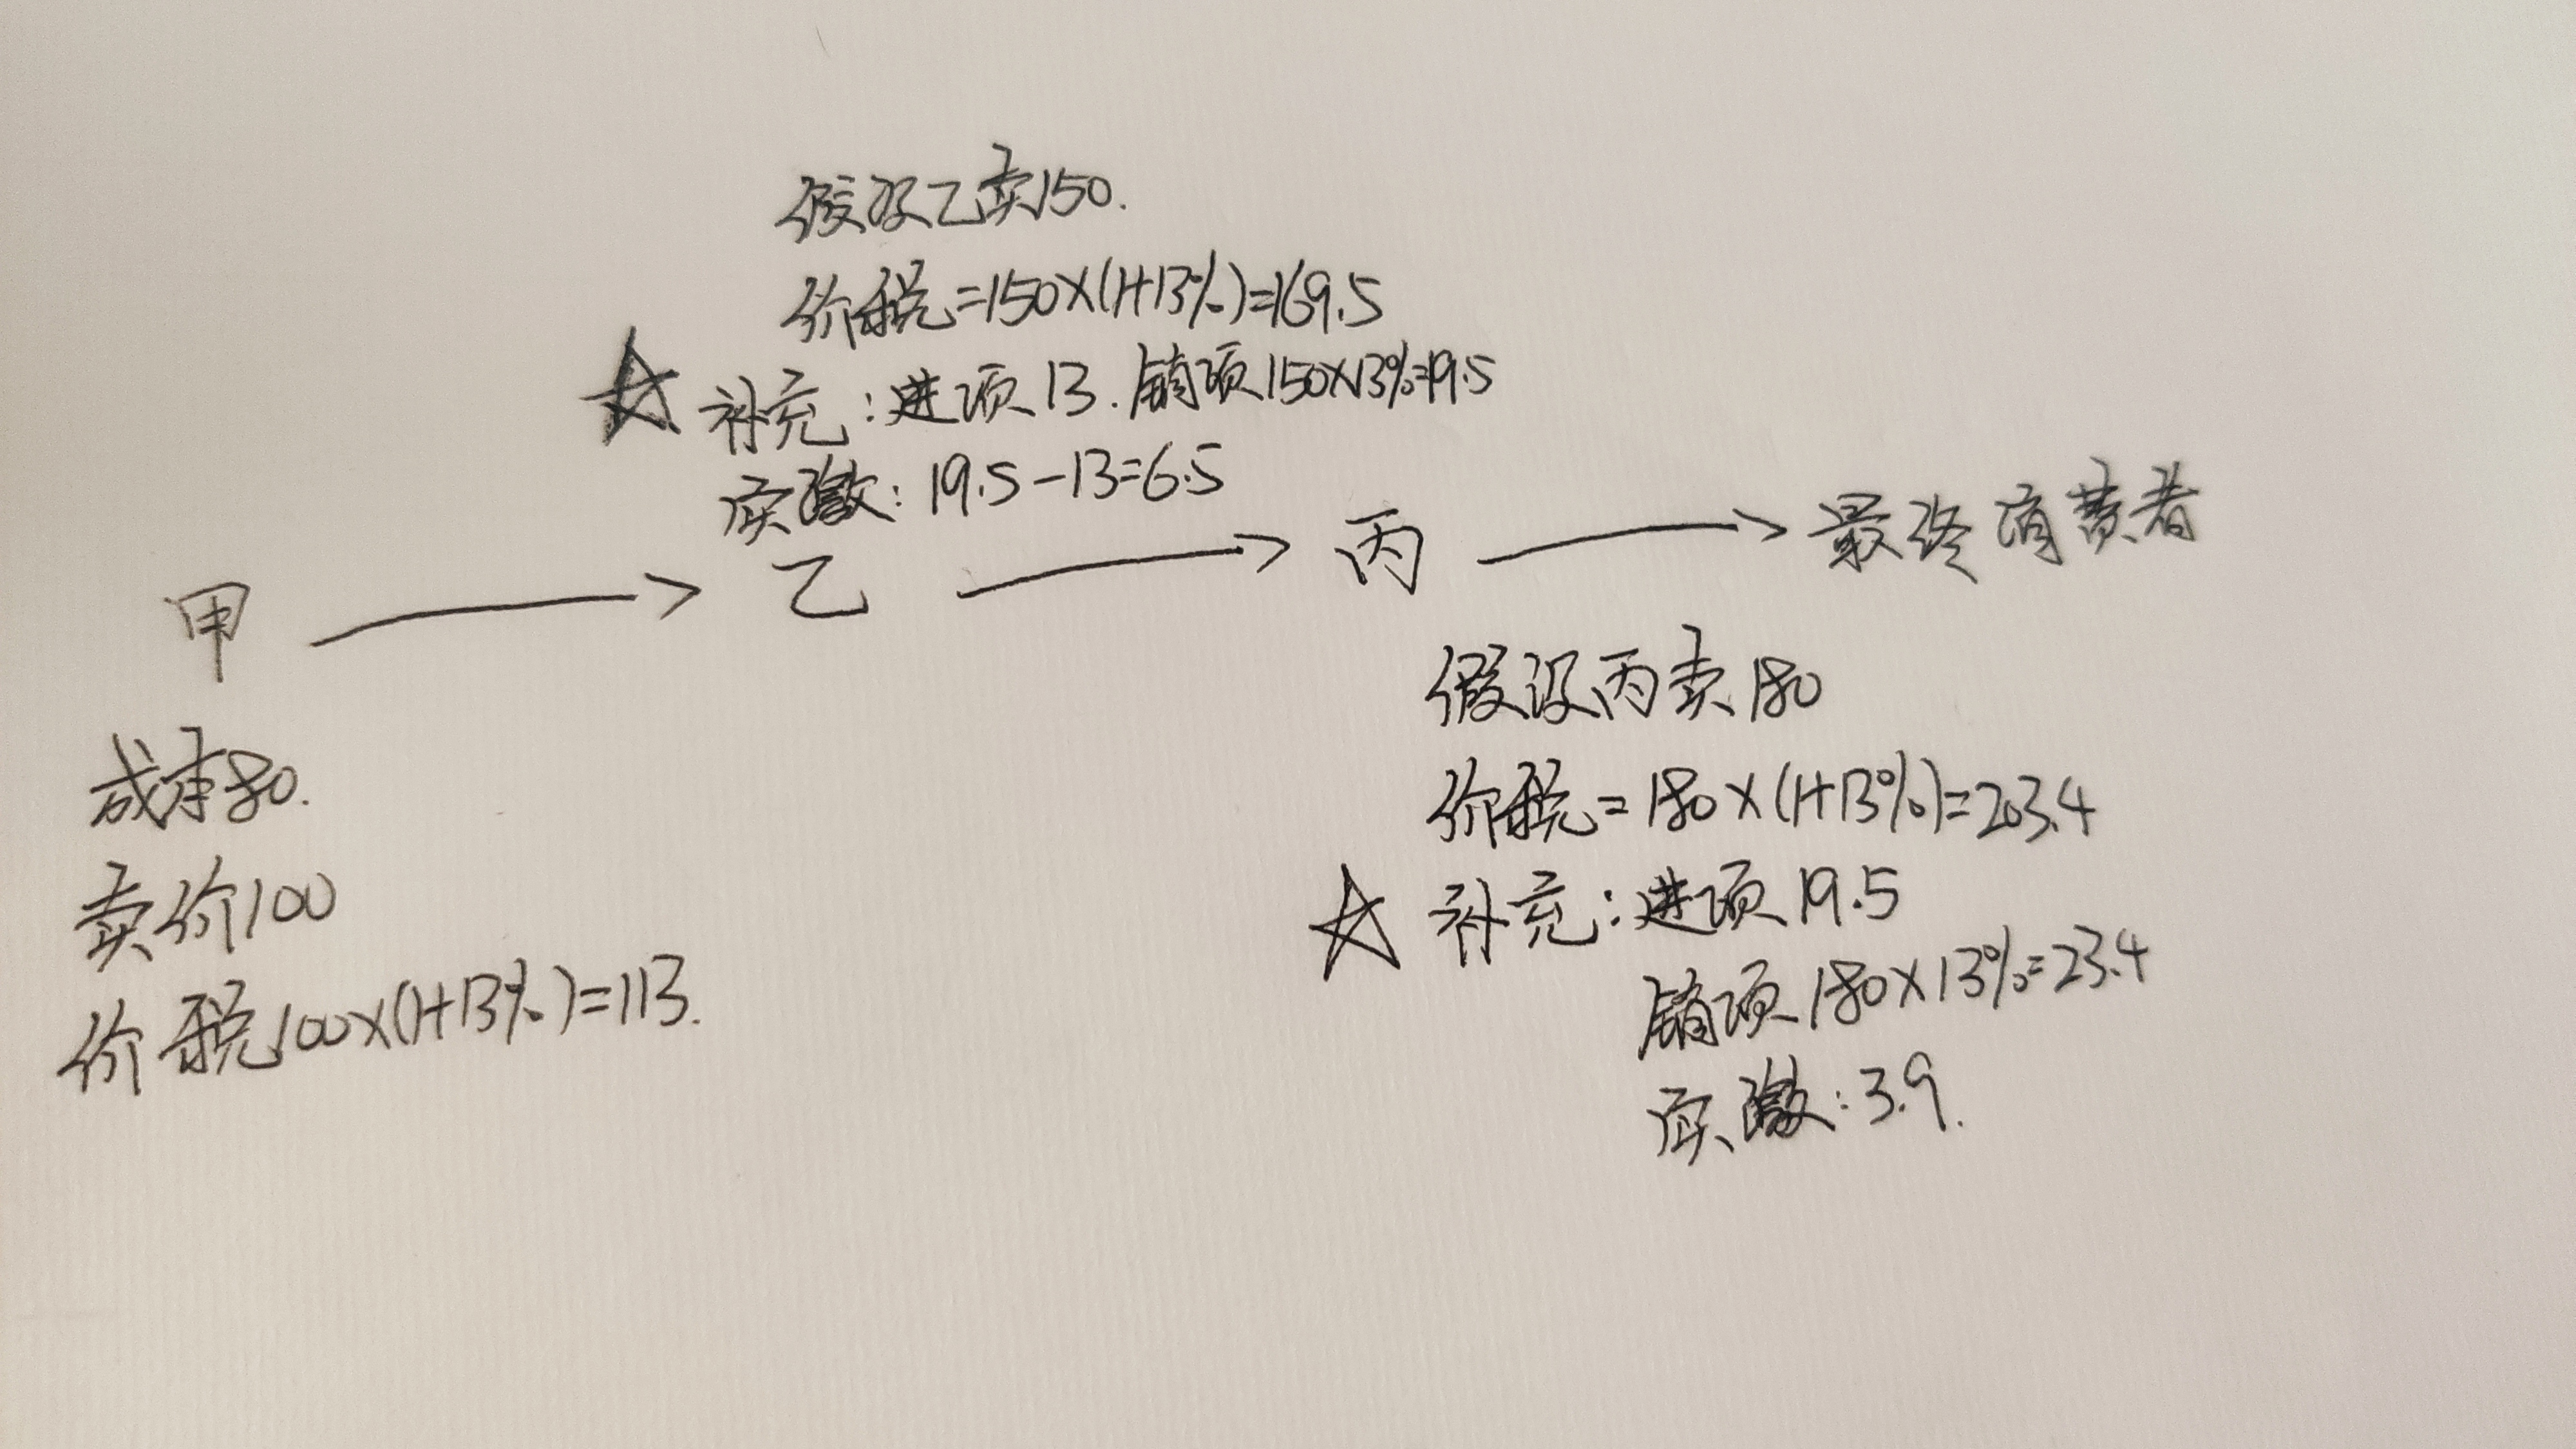 假设乙卖150.
价税=150×(1+13%)=169.5
☆补充:进项13.销项150×13%=19.5
实缴:19.5-13=6.5
甲 → 乙 → 丙 → 最终消费者
成本80.
卖价100
价税100×(1+13%)=113.
假设丙卖180
价税=180×(1+13%)=203.4
☆补充:进项19.5
销项180×13%=23.4
实缴:3.9.